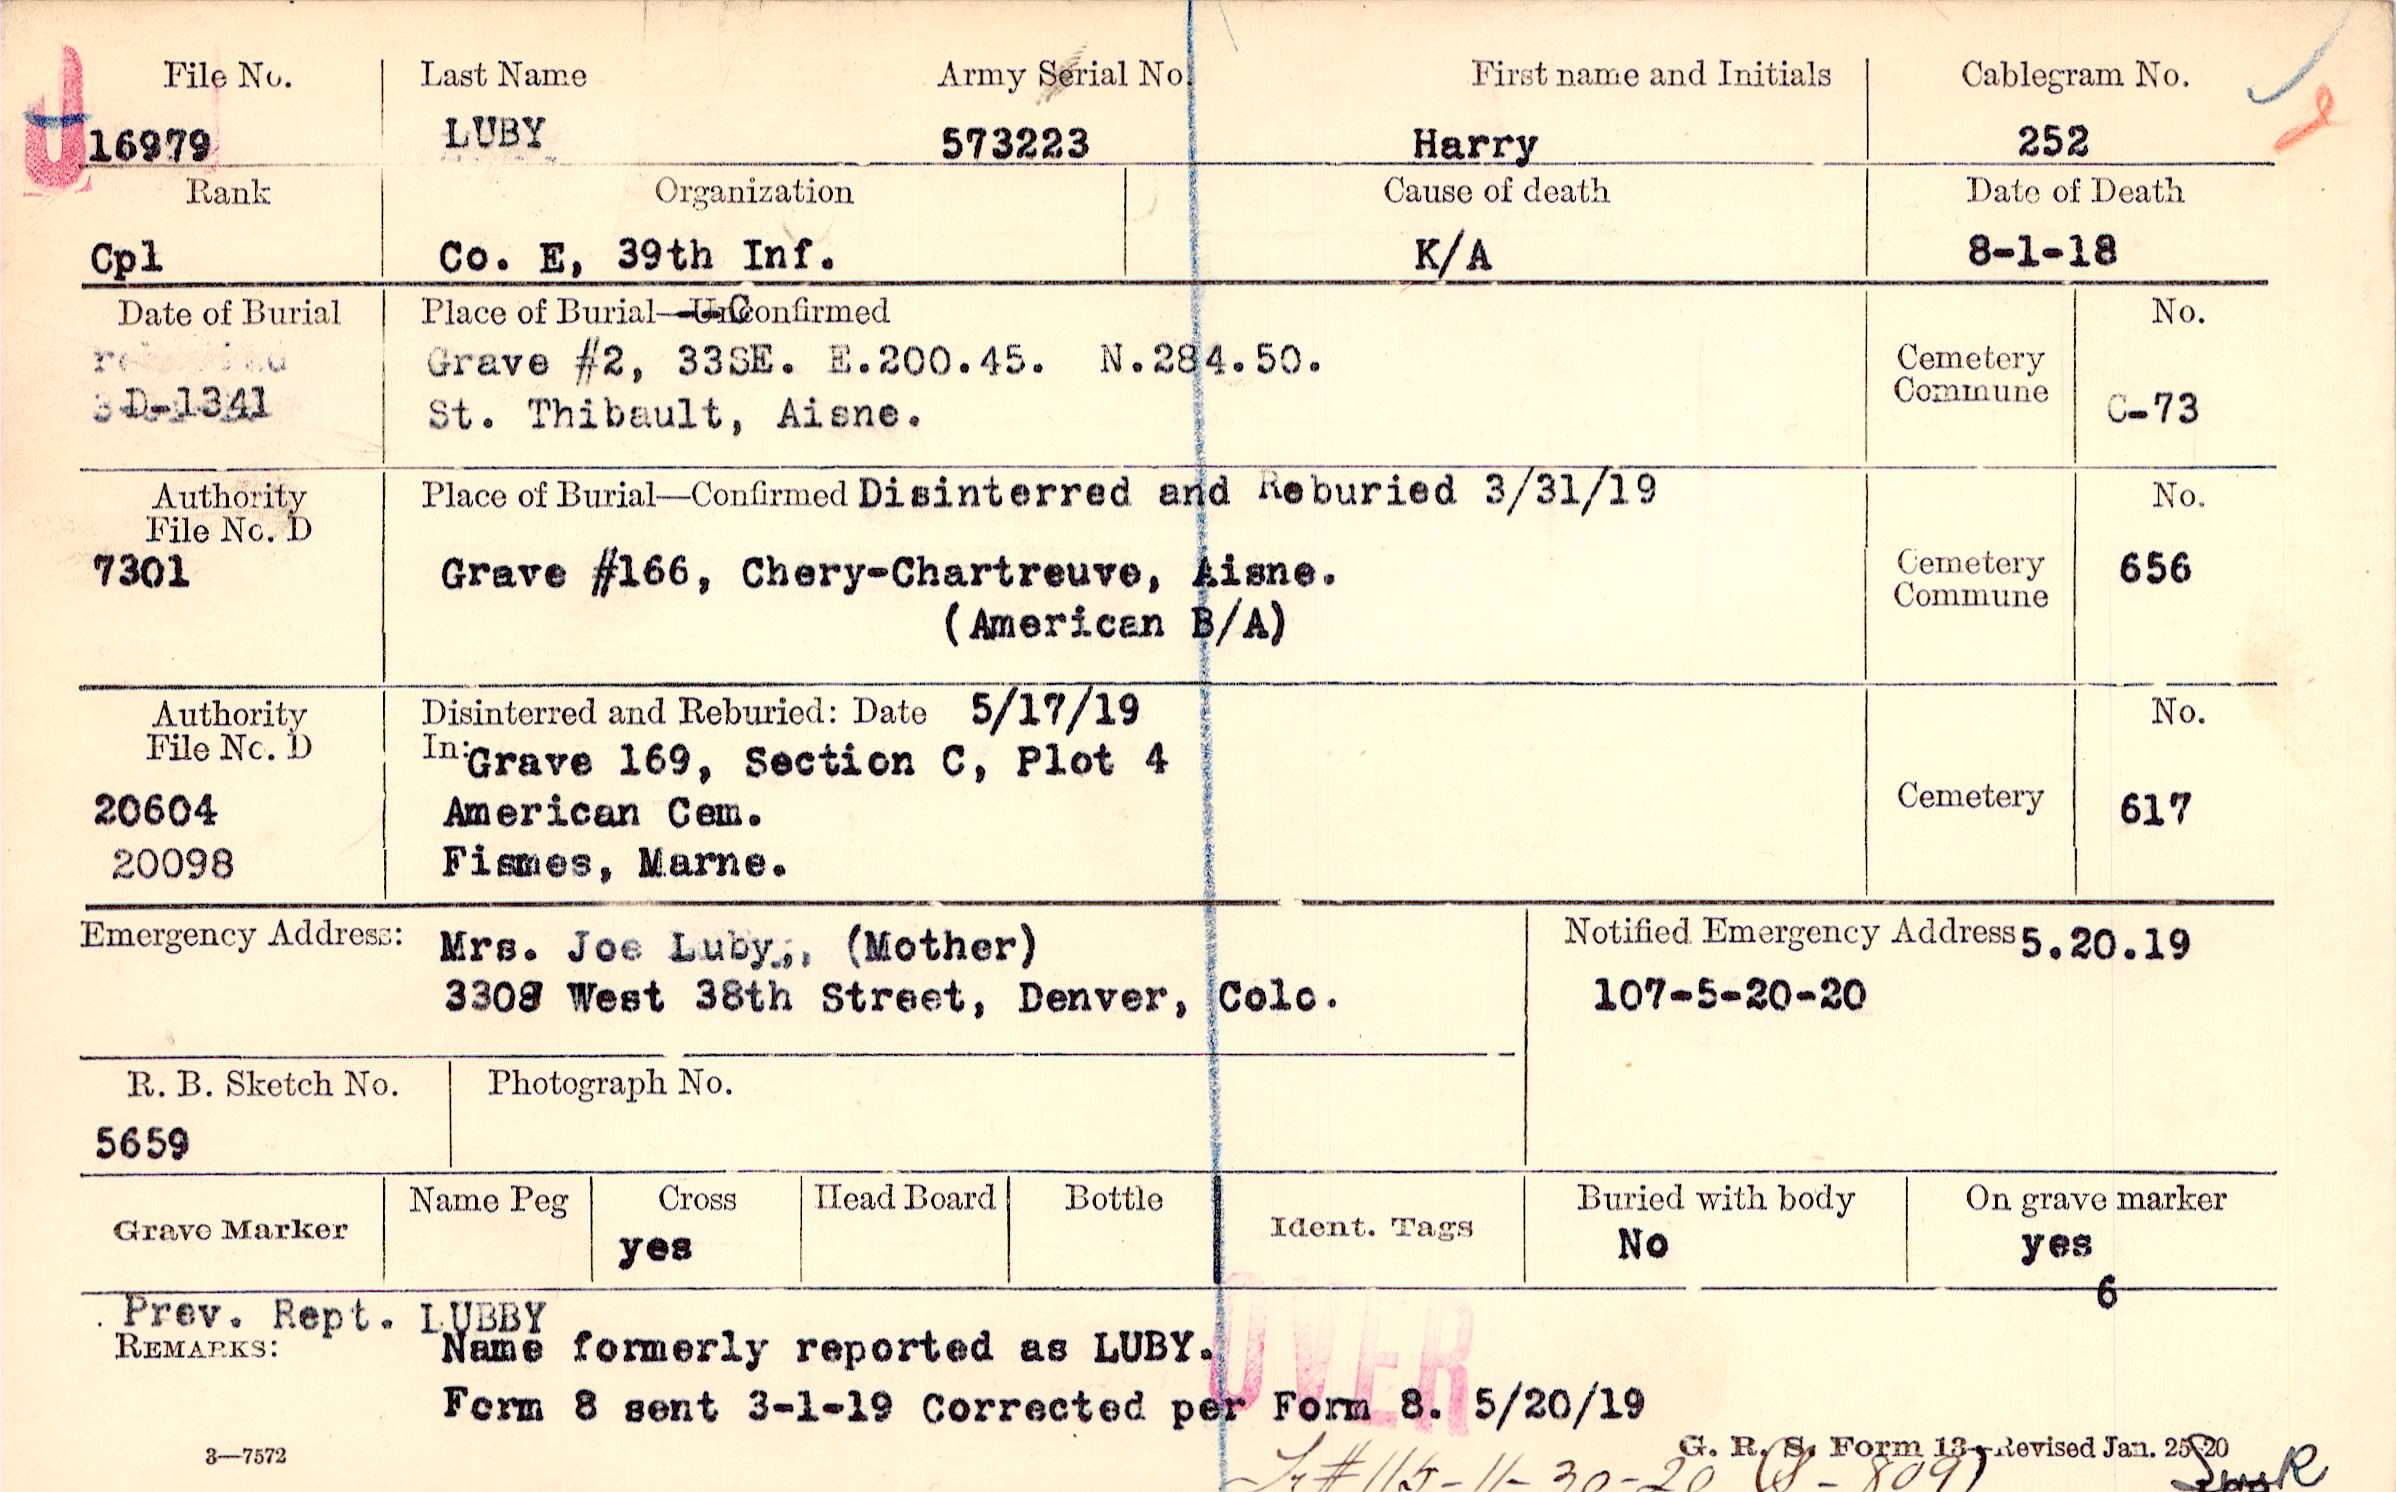 File No. Last Name Army Serial No. First name and Initials Cablegram No.
16979 LUBY 573223 Harry 252
Rank Organization Cause of death Date of Death
Cpl Co. E, 39th Inf. K/A 8-1-18
Date of Burial Place of Burial—UnConfirmed No.
Grave #2, 33SE. E.200.45. N.284.50. Cemetery
D-1341 St. Thibault, Aisne. Commune C-73
Authority Place of Burial—Confirmed Disinterred and Reburied 3/31/19 No.
File No. D
7301 Grave #166, Chery-Chartreuve, Aisne. Cemetery Commune 656
(American B/A)
Authority Disinterred and Reburied: Date 5/17/19 No.
File No. D In: Grave 169, Section C, Plot 4
20604 American Cem. Cemetery 617
20098 Fismes, Marne.
Emergency Address: Mrs. Joe Luby, (Mother) Notified Emergency Address 5.20.19
West 38th Street, Denver, Colo. 107-5-20-20
R. B. Sketch No. Photograph No.
5659
Grave Marker Name Peg Cross Head Board Bottle Ident. Tags Buried with body On grave marker
yes No yes
6
Prev. Rept. LUBBY
REMARKS: Name formerly reported as LUBY.
OVER
Form 8 sent 3-1-19 Corrected per Form 8. 5/20/19
3—7572 G. R. S. Form 13—Revised Jan. 25-20
#115-11-30-20 (8-809)